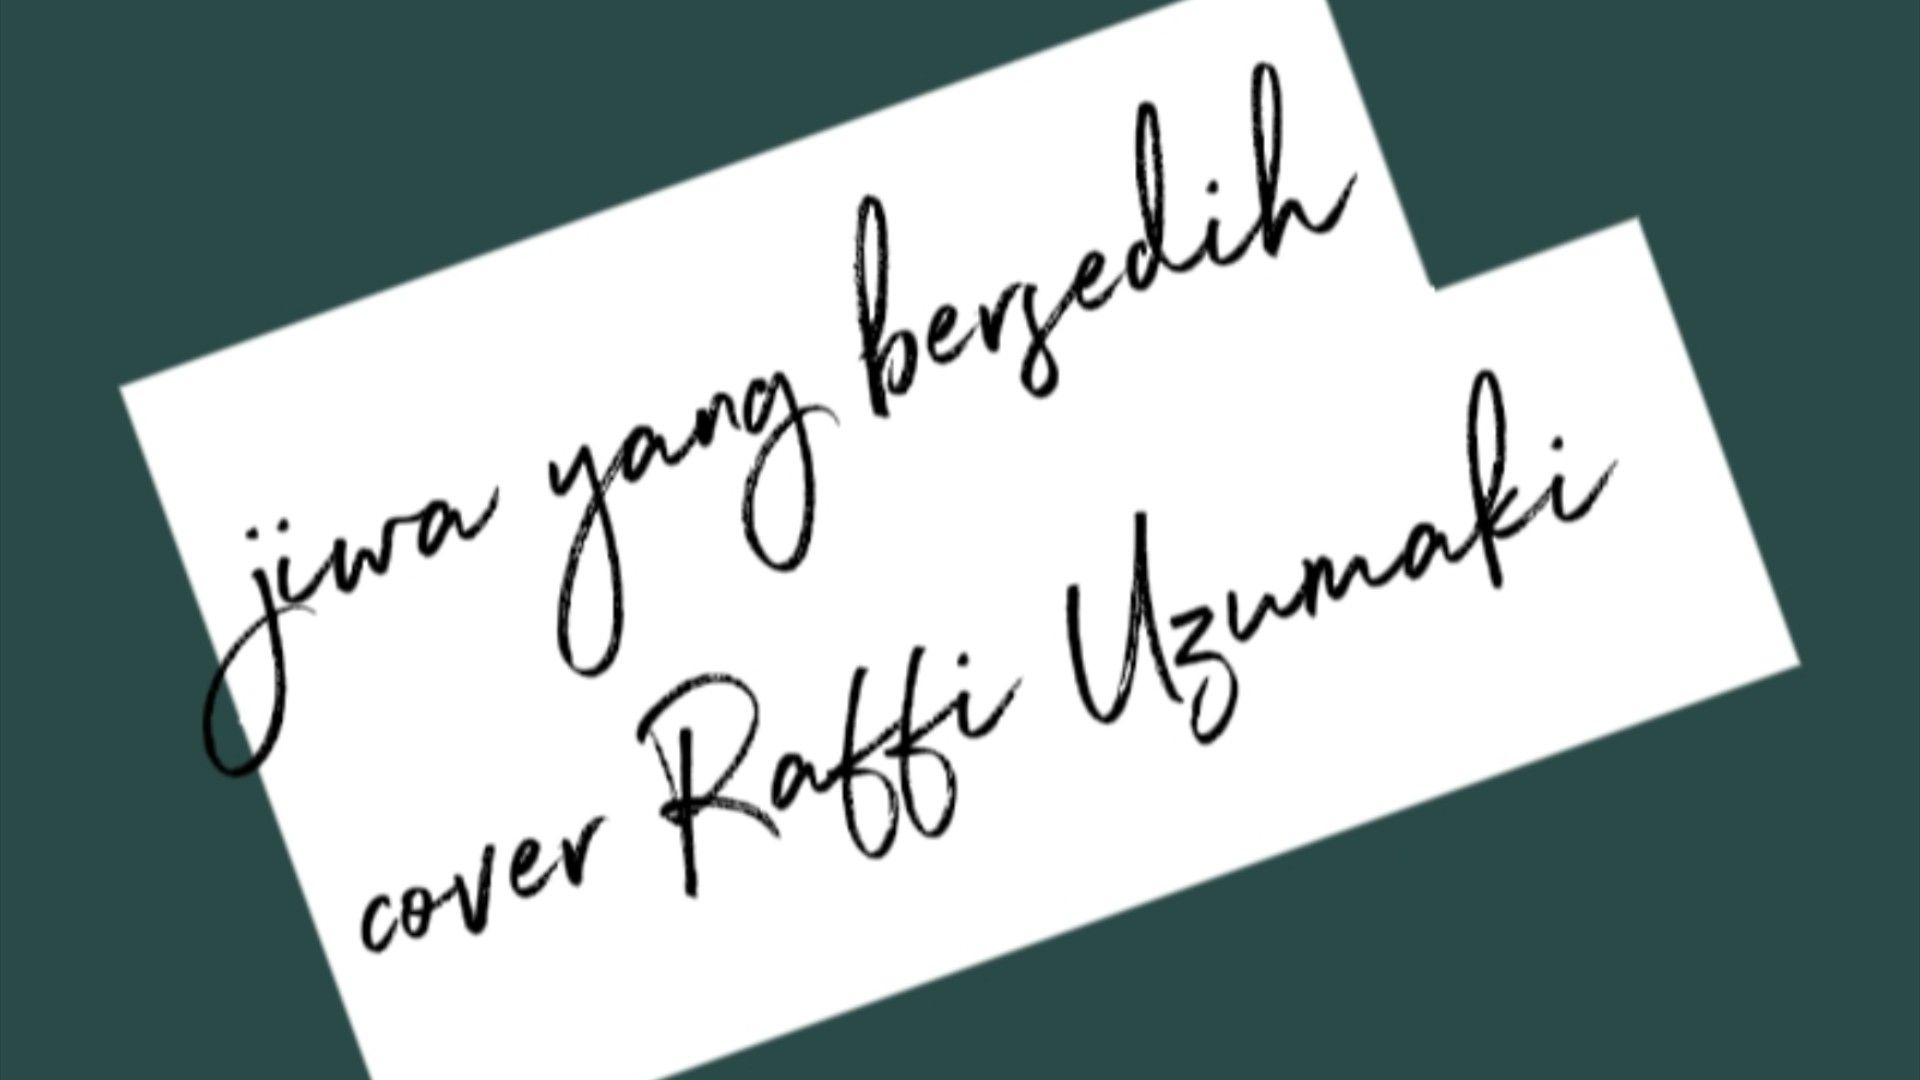 jiwa yang bersedih
cover Raffi Uzumaki